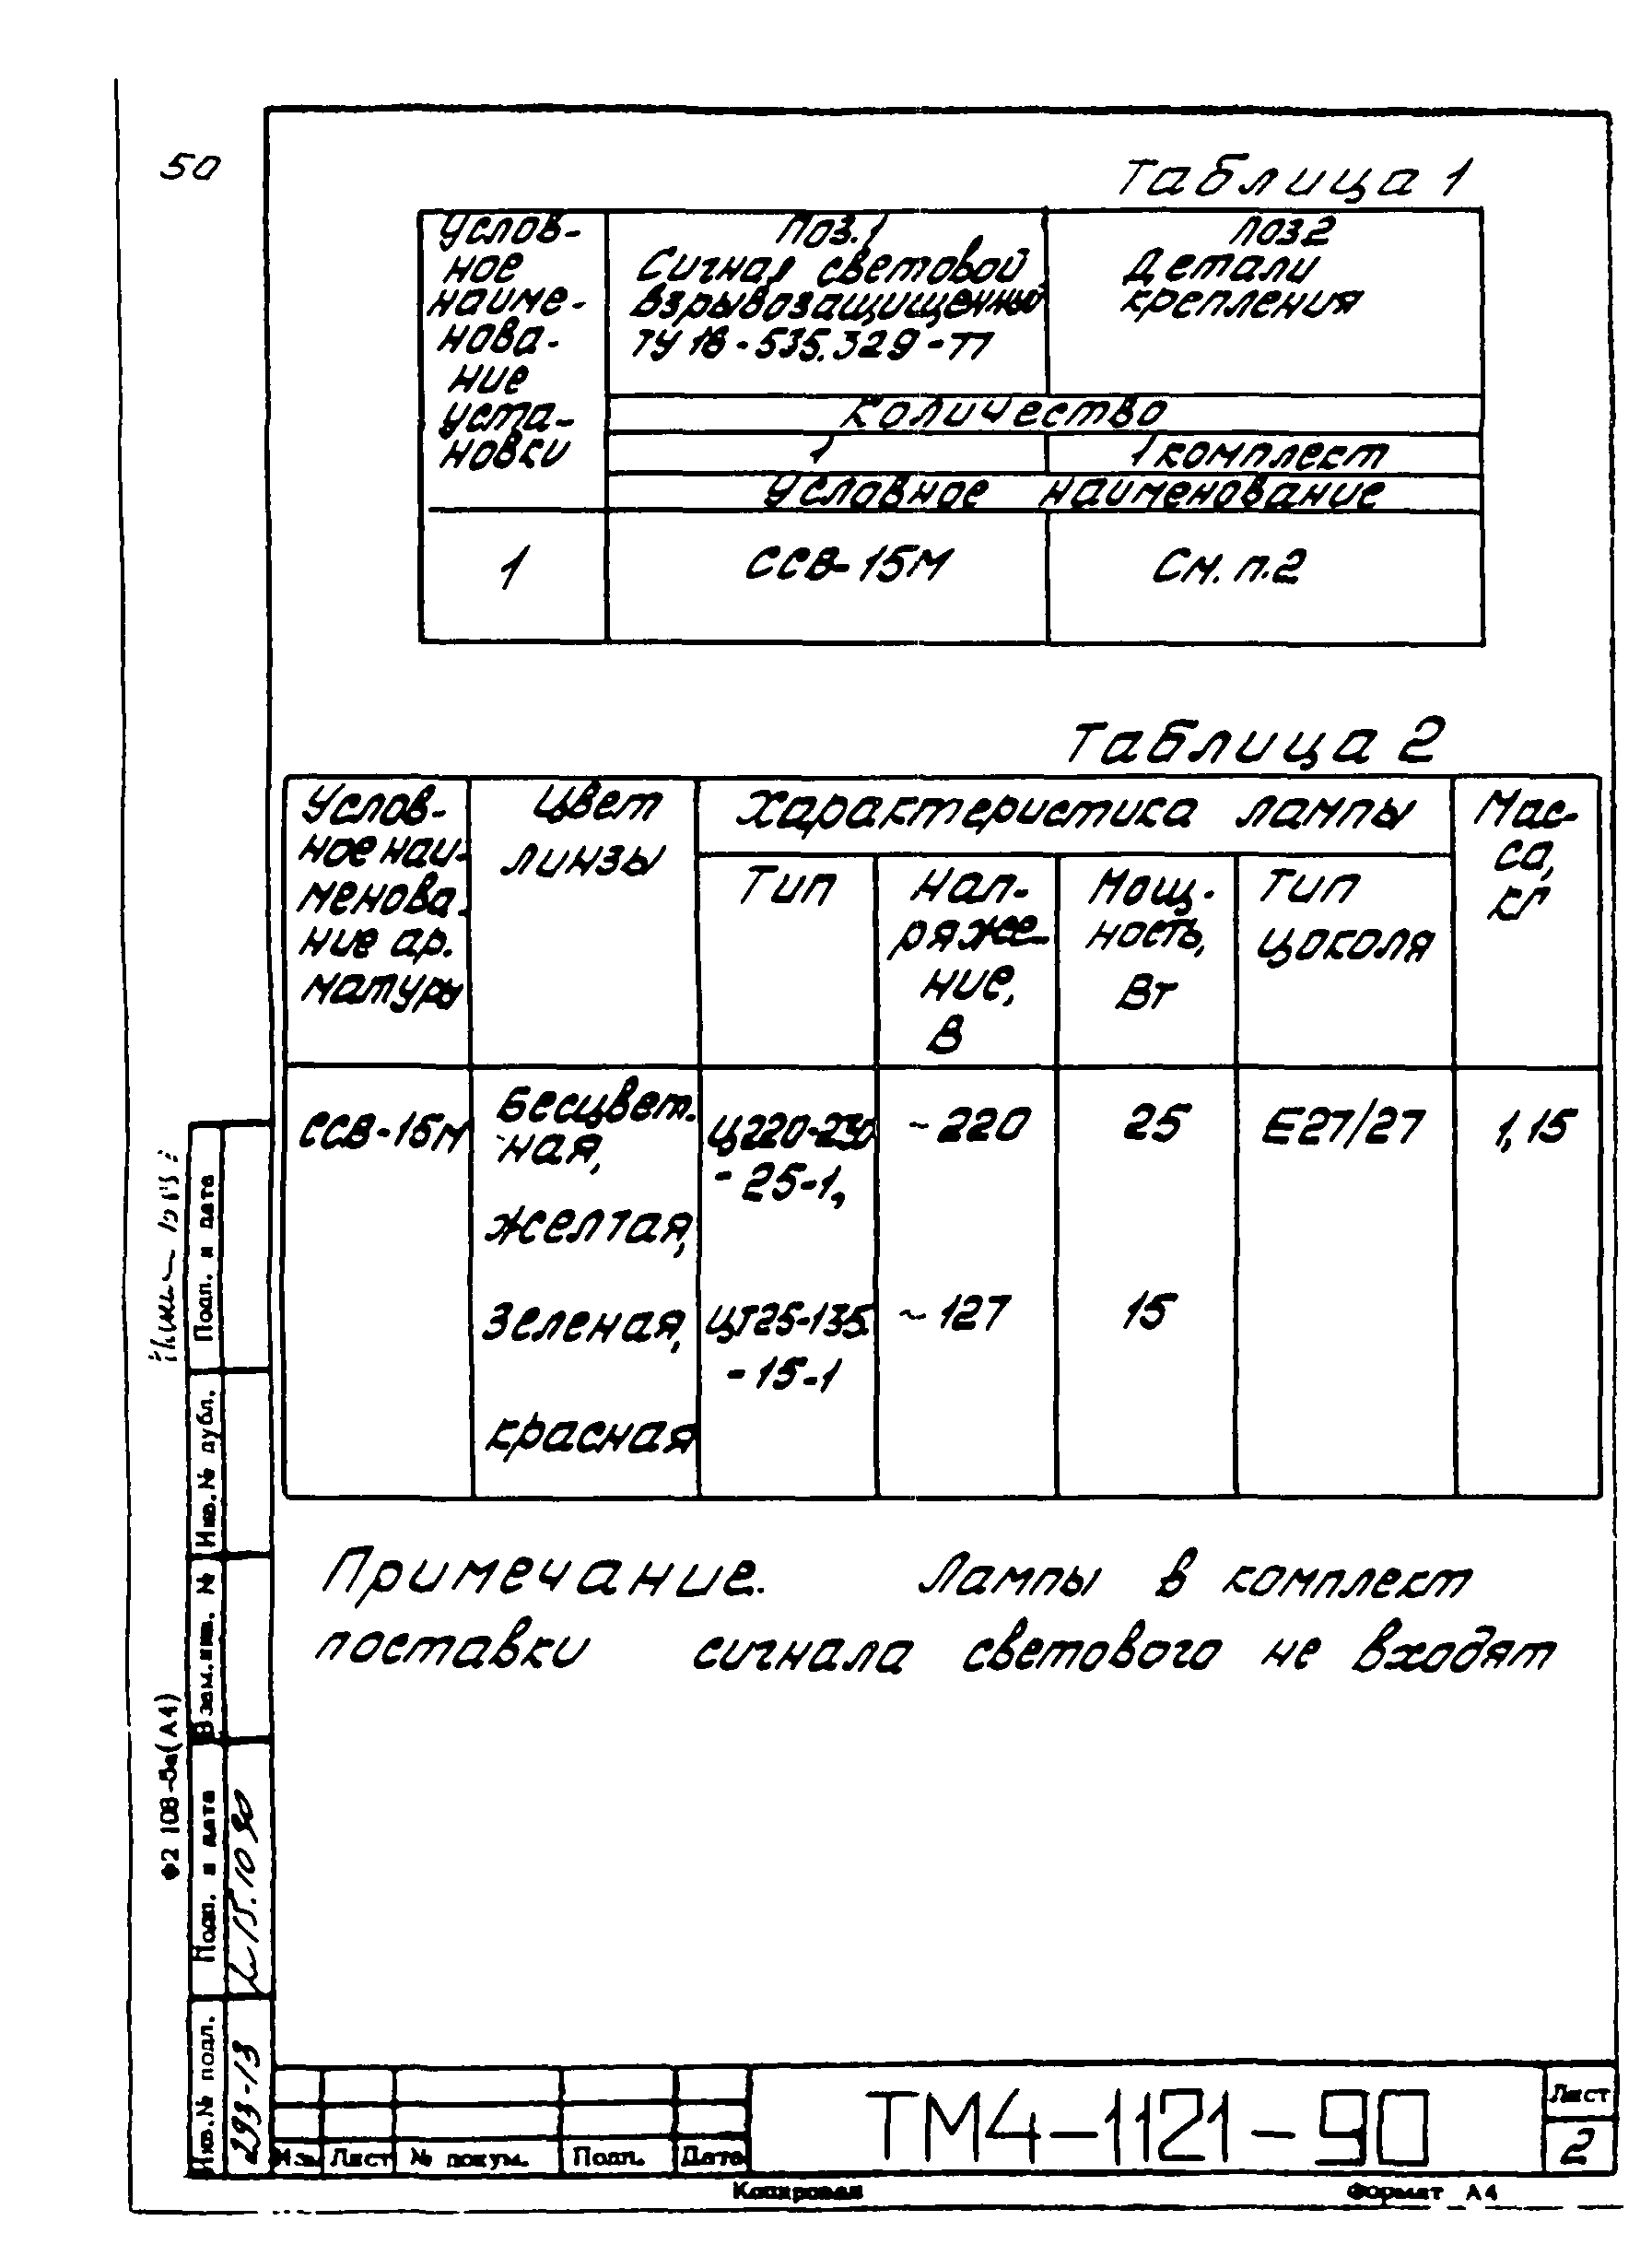 50
Таблица 1
Услов-
ное
наиме-
нова-
ние
уста-
новки
Поз. 1
Сигнал световой
взрывозащищенный
ТУ 16-535.329-77
поз 2
Детали
крепления
Количество
1
1 комплект
Условное наименование
1
ССВ-15М
См. п.2
Таблица 2
Услов-
ное наи-
менова-
ние ар-
матуры
Цвет
линзы
Характеристика лампы
Мас-
са,
кг
Тип
Нап-
ряже-
ние,
В
Мощ-
ность,
Вт
Тип
цоколя
ССВ-15М
Бесцвет-
ная,
желтая,
зеленая,
красная
Ц220-230
-25-1,
~220
25
Е27/27
1,15
~127
15
-15-1
Примечание. Лампы в комплект
поставки сигнала светового не входят
Подп. и дата
Инв. № дубл.
Взам. инв. №
Подп. и дата
15.10 90
Инв. № подл.
293-13
Ф2 108-5а(А4)
Из.
Лист
№ докум.
Подп.
Дата
ТМ4-1121-90
Лист
2
Копировал
Формат А4